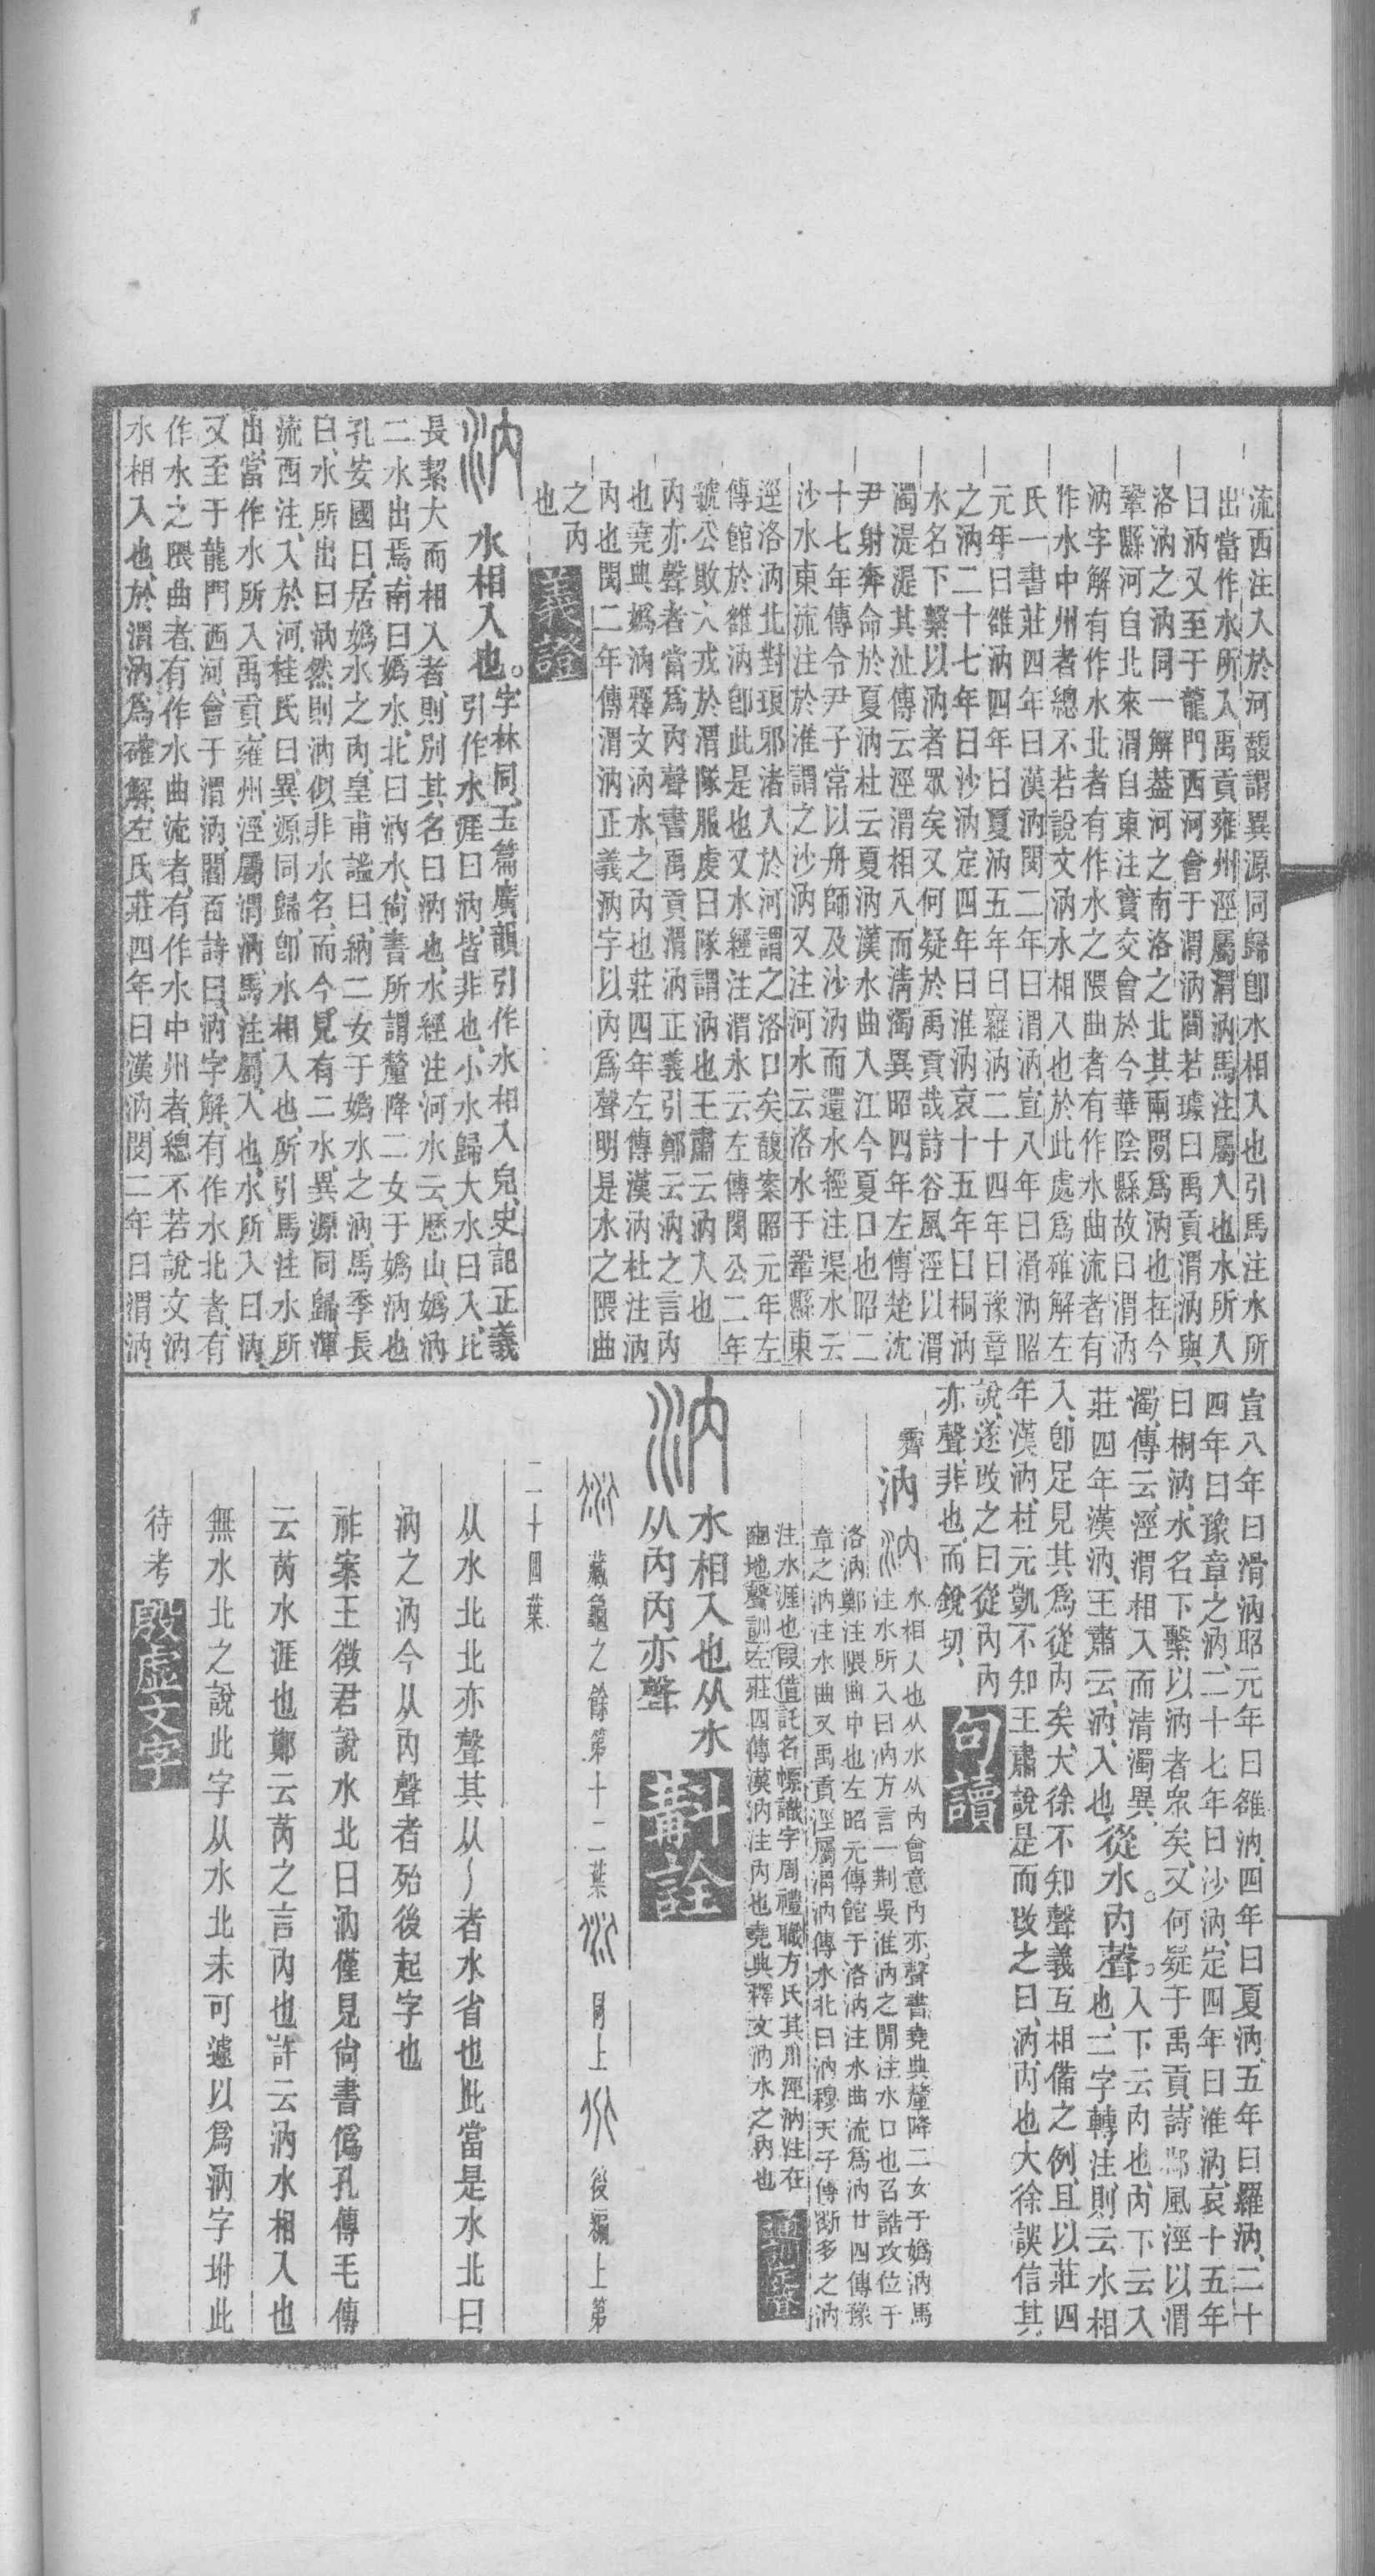 流西注入於河馥謂異源同歸卽水相入也引馬注水所
出當作水所入禹貢雍州涇屬渭汭馬注屬入也水所入
曰汭又至于龍門西河會于渭汭閻若璩曰禹貢渭汭與
洛汭之汭同一解葢河之南洛之北其兩閒爲汭也在今
鞏縣河自北來渭自東注實交會於今華陰縣故曰渭汭
汭字解有作水北者有作水之隈曲者有作水曲流者有
作水中州者總不若說文汭水相入也於此處爲確解左
氏一書莊四年曰漢汭閔二年曰渭汭宣八年曰滑汭昭
元年曰雒汭四年曰夏汭五年曰羅汭二十四年曰豫章
之汭二十七年曰沙汭定四年曰淮汭哀十五年曰桐汭
水名下繫以汭者眾矣又何疑於禹貢哉詩谷風涇以渭
濁湜湜其沚傳云涇渭相入而淸濁異昭四年左傳楚沈
尹射奔命於夏汭杜云夏汭漢水曲入江今夏口也昭二
十七年傳令尹子常以舟師及沙汭而還水經注渠水云
沙水東流注於淮謂之沙汭又注河水云洛水于鞏縣東
逕洛汭北對琅邪渚入於河謂之洛口矣馥案昭元年左
傳館於雒汭卽此是也又水經注渭水云左傳閔公二年
虢公敗犬戎於渭隊服虔曰隊謂汭也王肅云汭入也
內亦聲者當爲內聲書禹貢渭汭正義引鄭云汭之言內
也堯典嬀汭釋文汭水之內也莊四年左傳漢汭杜注汭
內也閔二年傳渭汭正義汭字以內爲聲明是水之隈曲
之內
也
義證
汭 水相入也。字林同玉篇廣韻引作水相入皃史記正義
引作水涯曰汭皆非也小水歸大水曰入比
長絜大而相入者則別其名曰汭也水經注河水云歷山嬀汭
二水出焉南曰嬀水北曰汭水尙書所謂釐降二女于嬀汭也
孔安國曰居嬀水之內皇甫謐曰納二女于嬀水之汭馬季長
曰水所出曰汭然則汭似非水名而今見有二水異源同歸渾
流西注入於河桂氏曰異源同歸卽水相入也所引馬注水所
出當作水所入禹貢雍州涇屬渭汭馬注屬入也水所入曰汭
又至于龍門西河會于渭汭閻百詩曰汭字解有作水北者有
作水之隈曲者有作水曲流者有作水中州者總不若說文汭
水相入也於渭汭爲確解左氏莊四年曰漢汭閔二年曰渭汭
宣八年曰滑汭昭元年曰雒汭四年曰夏汭五年曰羅汭二十
四年曰豫章之汭二十七年曰沙汭定四年曰淮汭哀十五年
曰桐汭水名下繫以汭者眾矣又何疑于禹貢詩邶風涇以渭
濁傳云涇渭相入而清濁異從水。內聲。入下云內也內下云入
莊四年漢汭王肅云汭入也也二字轉注則云水相
入卽足見其爲從內矣大徐不知聲義互相備之例且以莊四
年漢汭杜元凱不知王肅說是而改之曰汭內也大徐誤信其
說遂改之曰從內內
亦聲非也而銳切
句讀
霽 汭 水相入也从水从內會意內亦聲書堯典釐降二女于嬀汭馬
注水所入曰汭方言一荆吳淮汭之閒注水口也召誥攻位于
洛汭鄭注隈曲中也左昭元傳館于洛汭注水曲流爲汭廿四傳豫
章之汭注水曲又禹貢涇屬渭汭傳水北曰汭穆天子傳㫁多之汭
注水涯也叚借託名幖識字周禮職方氏其川涇汭注在
豳地聲訓左莊四傳漢汭注內也堯典釋文汭水之內也
通訓定聲
汭 水相入也从水
从內內亦聲
斠詮
藏龜之餘第十二葉 同上 後編上第
二十四葉
从水北北亦聲其从丿者水省也此當是水北曰
汭之汭今从內聲者殆後起字也
祚案王徵君說水北曰汭僅見尙書僞孔傳毛傳
云芮水涯也鄭云芮之言內也許云汭水相入也
無水北之說此字从水北未可遽以爲汭字坿此
待考
殷虛文字